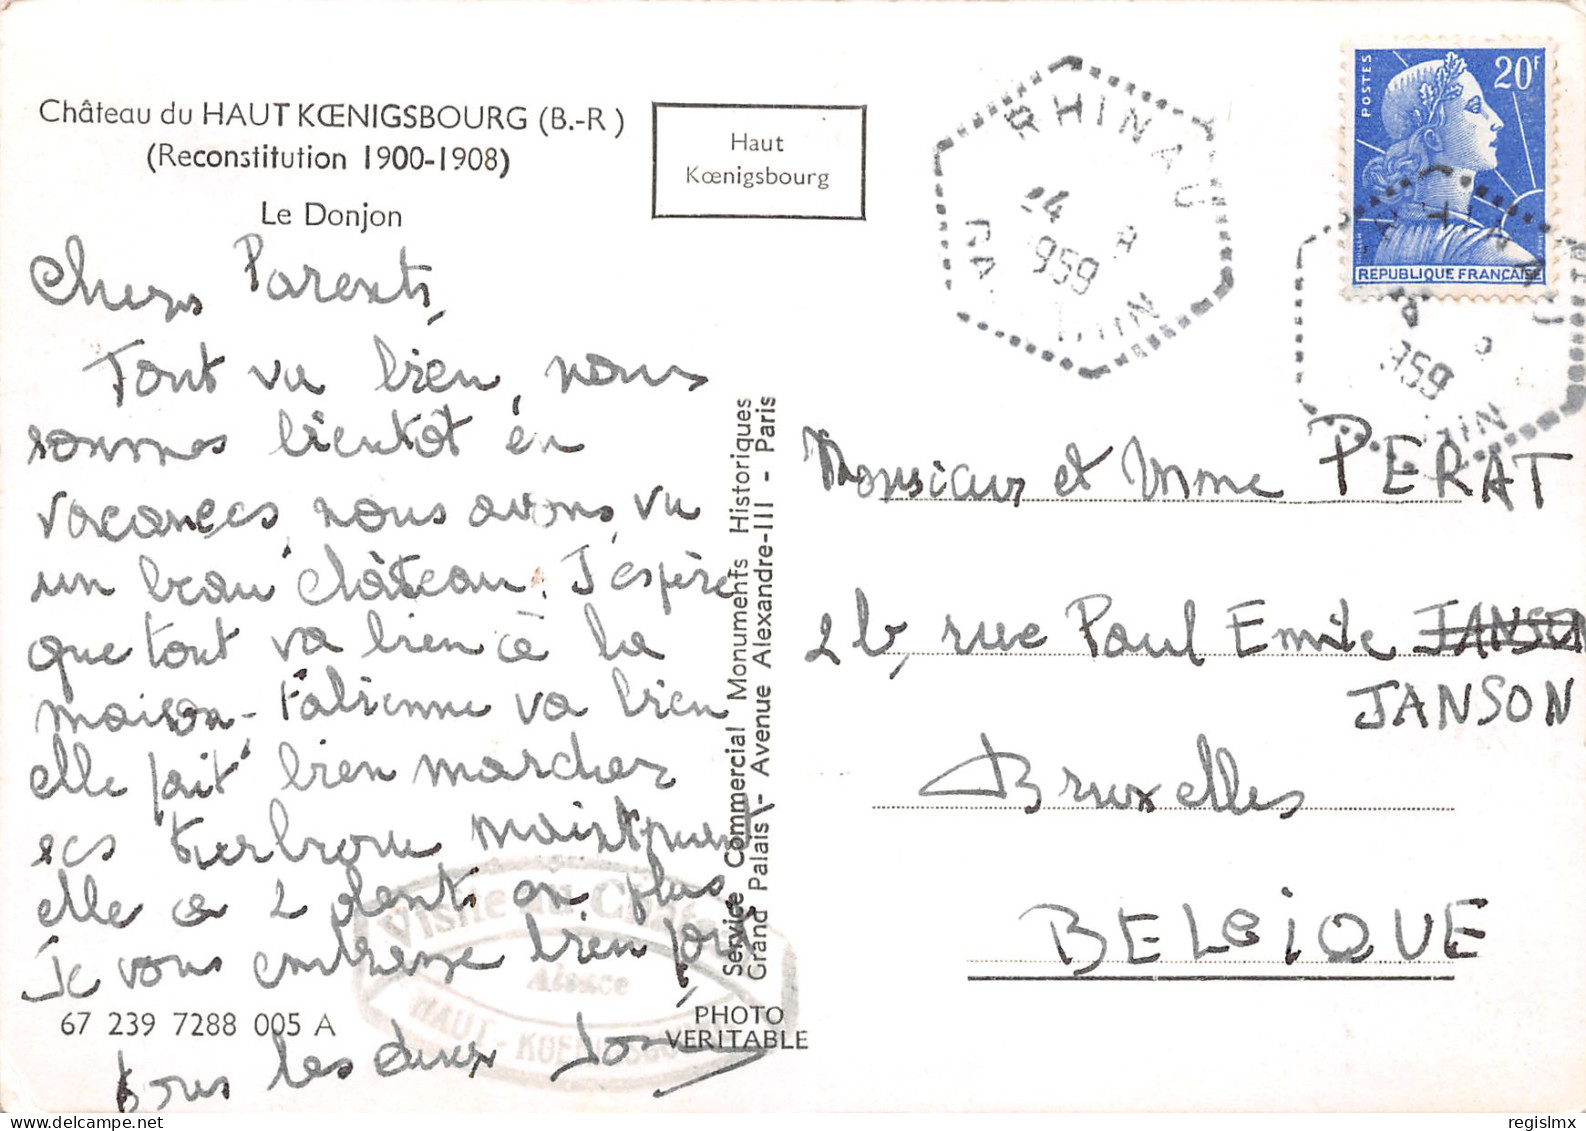 Château du HAUT KŒNIGSBOURG (B.-R)
(Reconstitution 1900-1908)
Le Donjon
Haut
Kœnigsbourg
RHINAU
24 8
1959
BAS RHIN
POSTES
20F
REPUBLIQUE FRANÇAISE
959
RHIN
Chers Parents,
Tout va bien, nous
sommes bientôt en
vacances, nous avons vu
un beau château. J'espère
que tout va bien à la
maison - Fabienne va bien
elle fait bien marcher
ses maintenant
elle a 2 dents en plus
je vous embrasse bien fort
tous les deux
Monsieur et Mme PERAT
2b, rue Paul Emile JANSON
JANSON
Bruxelles
BELGIQUE
Service Commercial Monuments Historiques
Grand Palais - Avenue Alexandre-III - Paris
PHOTO
VERITABLE
67 239 7288 005 A
Visite du Château
Alsace
HAUT - KOENIGSBOURG
regislmx